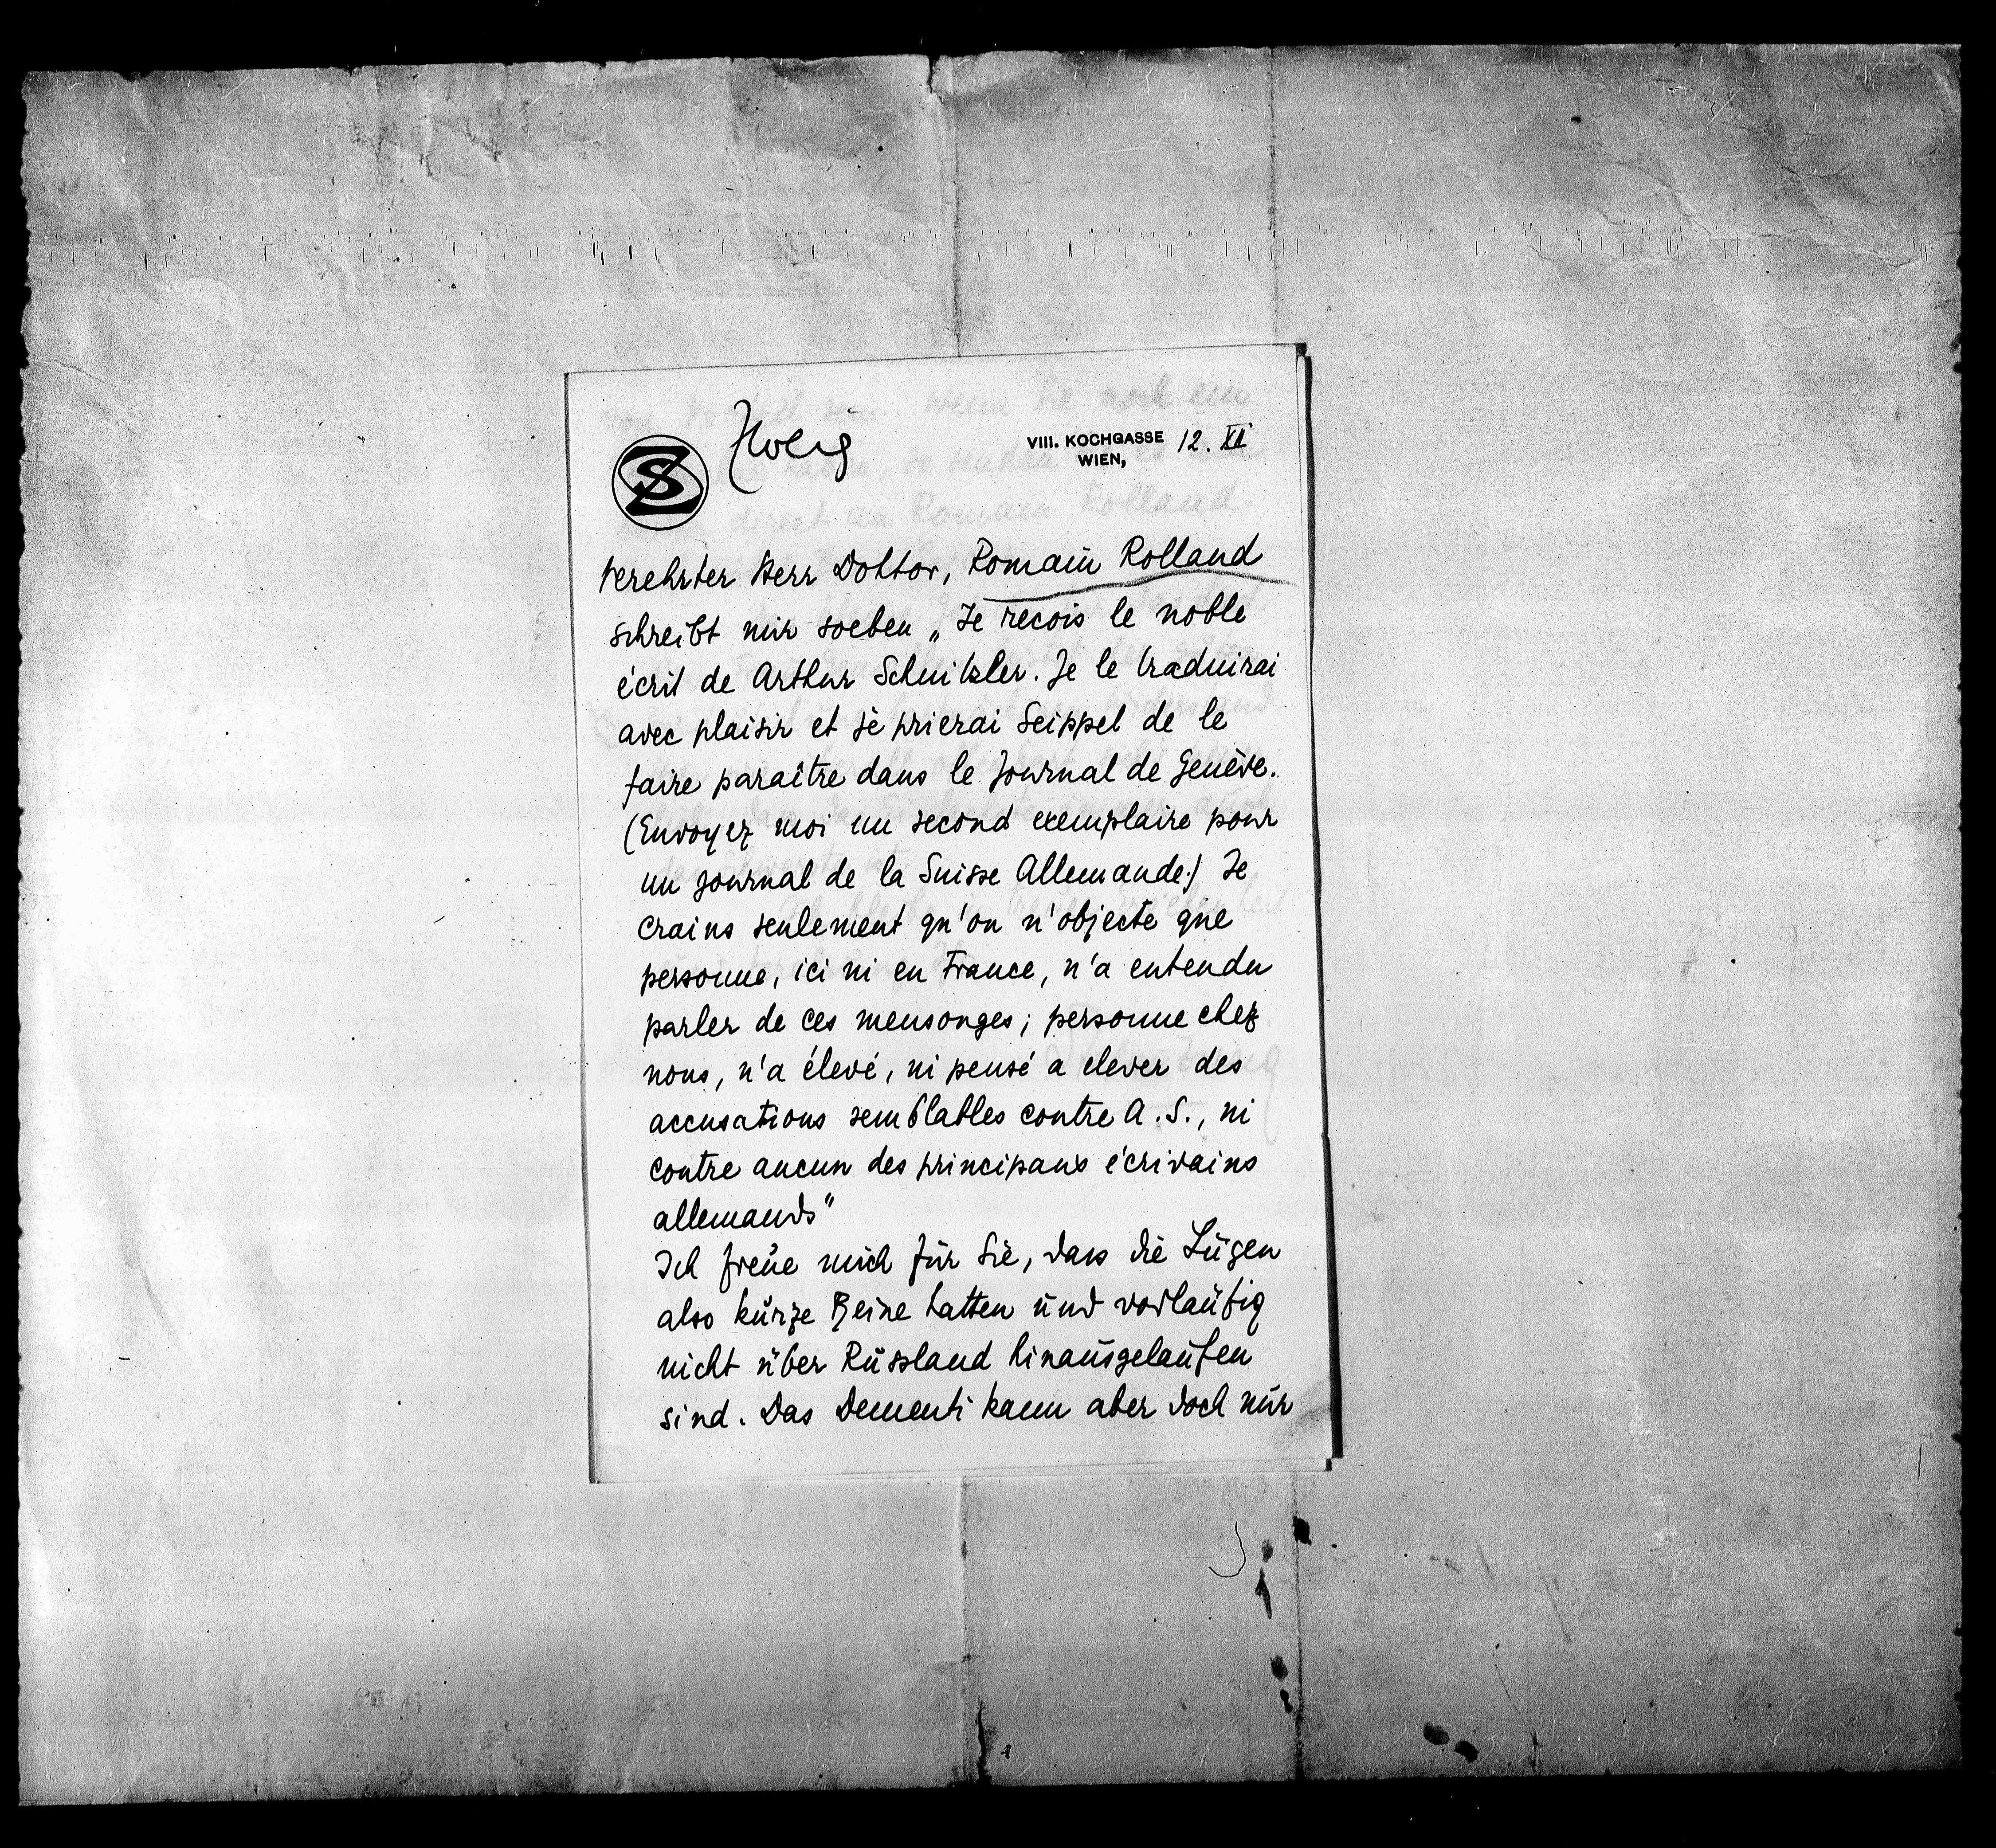 SZ
Zweig
VIII. KOCHGASSE 12. XII
WIEN,
Verehrter Herr Doktor, Romain Rolland
schreibt mir soeben „Je recois le noble
écrit de Arthur Schnitzler. Je le traduirai
avec plaisir et je prierai Seippel de le
faire paraître dans le Journal de Genève.
(Envoyez moi un second exemplaire pour
un journal de la Suisse Allemande.) Je
crains seulement qu'on n'objecte que
personne, ici ni en France, n'a entendu
parler de ces mensonges; personne chez
nous, n'a élevé, ni pensé a elever des
accusations semblables contre A.S., ni
contre aucun des principaux écrivains
allemands"
Ich freue mich für Sie, dass die Lügen
also kurze Beine hatten und vorläufig
nicht über Russland hinausgelaufen
sind. Das Dementi kann aber doch nur